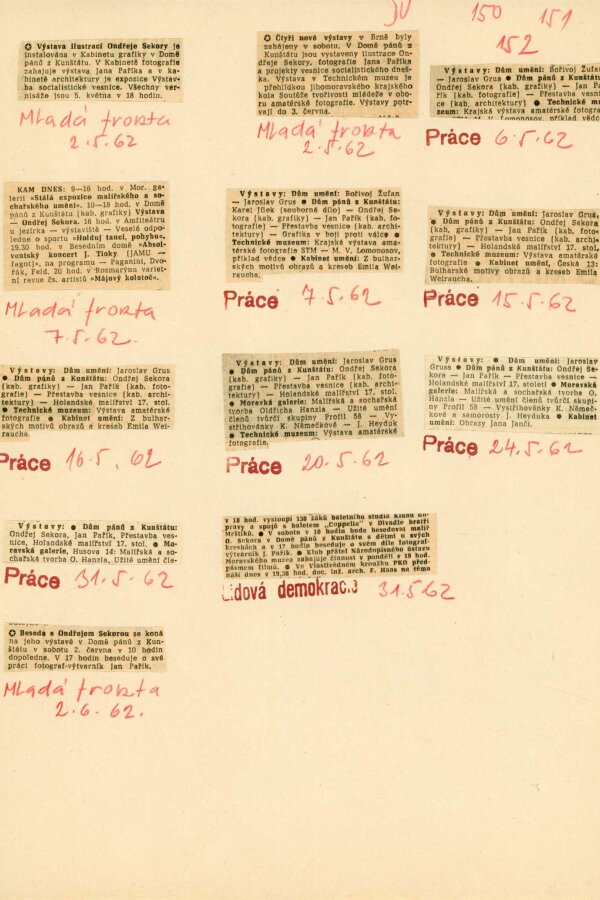 JV 150 151
152
✪ Výstava ilustrací Ondřeje Sekory je
instalována v Kabinetu grafiky v Domě
pánů z Kunštátu. V Kabinetě fotografie
zahajuje výstava Jana Paříka a v ka-
binetě architektury je expozice Výstav-
ba socialistické vesnice. Všechny ver-
nisáže jsou 5. května v 18 hodin.
Mladá fronta
2.5.62
✪ Čtyři nové výstavy v Brně byly
zahájeny v sobotu. V Domě pánů z
Kunštátu jsou vystaveny ilustrace On-
dřeje Sekory, fotografie Jana Paříka
a projekty vesnice socialistického dneš-
ka. Výstava v Technickém muzeu je
přehlídkou jihomoravského krajského
kola Soutěže tvořivosti mládeže v obo-
ru amatérské fotografie. Výstavy potr-
vají do 3. června.
Mladá fronta
2.5.62
Výstavy: Dům umění: Bořivoj Žufan
— Jaroslav Grus ● Dům pánů z Kunštátu:
Ondřej Sekora (kab. grafiky) — Jan Pařík
(kab. fotografie) — Přestavba vesnice
(kab. architektury) ● Technické mu-
zeum: Krajská výstava amatérské fotogra-
fie STM — M. V. Lomonosov, příklad vědce
Práce 6.5.62
KAM DNES: 9—16 hod. v Mor. ga-
lerii »Stálá expozice malířského a so-
chařského umění«. 10—18 hod. v Domě
pánů z Kunštátu (kab. grafiky) Výstava
— Ondřej Sekora. 16 hod. v Amfiteátru
u jezírka — výstaviště — Veselé odpo-
ledne o sportu »Holduj tanci, pohybu«.
19.30 hod. v Besedním domě »Absol-
ventský koncert J. Tisky (JAMU —
fagot)«, na programu — Paganini, Dvo-
řák, Feld. 20 hod. v Rozmarýnu variet-
ní revue čs. artistů »Májový kolotoč«.
Mladá fronta
7.5.62.
Výstavy: Dům umění: Bořivoj Žufan
— Jaroslav Grus ● Dům pánů z Kunštátu:
Karel Jílek (souborné dílo) — Ondřej Se-
kora (kab. grafiky) — Jan Pařík (kab.
fotografie) — Přestavba vesnice (kab. archi-
tektury) — Grafika v boji proti válce ●
Technické muzeum: Krajská výstava ama-
térské fotografie STM — M. V. Lomonosov,
příklad vědce ● Kabinet umění: Z bulhar-
ských motivů obrazů a kreseb Emila Wei-
raucha.
Práce 7.5.62
Výstavy: Dům umění: Jaroslav Grus,
● Dům pánů z Kunštátu: Ondřej Sekora
(kab. grafiky) — Jan Pařík (kab. foto-
grafie) — Přestavba vesnice (kab. archi-
tektury) — Holandské malířství 17. stol.
● Technické muzeum: Výstava amatérské
fotografie ● Kabinet umění, Česká 13:
Bulharské motivy obrazů a kreseb Emila
Weiraucha.
Práce 15.5.62
Výstavy: Dům umění: Jaroslav Grus
● Dům pánů z Kunštátu: Ondřej Sekora
(kab. grafiky) — Jan Pařík (kab. foto-
grafie) — Přestavba vesnice (kab. archi-
tektury) — Holandské malířství 17. stol.
● Technické muzeum: Výstava amatérské
fotografie ● Kabinet umění: Z bulhar-
ských motivů obrazů a kreseb Emila Wei-
raucha.
Práce 16.5.62
Výstavy: Dům umění: Jaroslav Grus
● Dům pánů z Kunštátu: Ondřej Sekora
(kab. grafiky) — Jan Pařík (kab. foto-
grafie) — Přestavba vesnice (kab. archi-
tektury) — Holandské malířství 17. stol.
● Moravská galerie: Malířská a sochařská
tvorba Oldřicha Hanzla — Užité umění
členů tvůrčí skupiny Profil 58 — Vy-
střihovánky K. Němečkové — J. Heyduk
● Technické muzeum: Výstava amatérské
fotografie.
Práce 20.5.62
Výstavy: ● Dům umění: Jaroslav
Gruss ● Dům pánů z Kunštátu: Ondřej Se-
kora — Jan Pařík — Přestavba vesnice —
Holandské malířství 17. století ● Moravská
galerie: Malířská a sochařská tvorba O.
Hanzla — Užité umění členů tvůrčí sku-
piny Profil 58 — Vystřihovánky K. Němeč-
kové a samorosty J. Heyduka ● Kabinet
umění: Obrazy Jana Jančí.
Práce 24.5.62
Výstavy: ● Dům pánů z Kunštátu:
Ondřej Sekora, Jan Pařík, Přestavba ves-
nice, Holandské malířství 17. stol. ● Mo-
ravská galerie, Husova 14: Malířská a so-
chařská tvorba O. Hanzla, Užité umění čle-
Práce 31.5.62
v 18 hod. vystoupí 130 žáků baletního studia Klubu
práce a spojů s baletem „Coppelia“ v Divadle bratří
Mrštíků. ● V sobotu v 10 hodin bude besedovat malíř
O. Sekora v Domě pánů z Kunštátu s dětmi o svých
kresbách a v 17 hodin beseduje o svém díle fotograf-
výtvarník J. Pařík. ● Klub přátel Národopisného ústavu
Moravského musea zahajuje činnost v pondělí v 19 hod.
pásmem filmů. ● Ve Vlastivědném kroužku PKO před-
náší dnes v 19,30 hod. doc. inž. arch. F. Haas na téma
Lidová demokracie 31.5.62
✪ Beseda s Ondřejem Sekorou se koná
na jeho výstavě v Domě pánů z Kun-
štátu v sobotu 2. června v 10 hodin
dopoledne. V 17 hodin beseduje o své
práci fotograf-výtvarník Jan Pařík.
Mladá fronta
2.6.62.